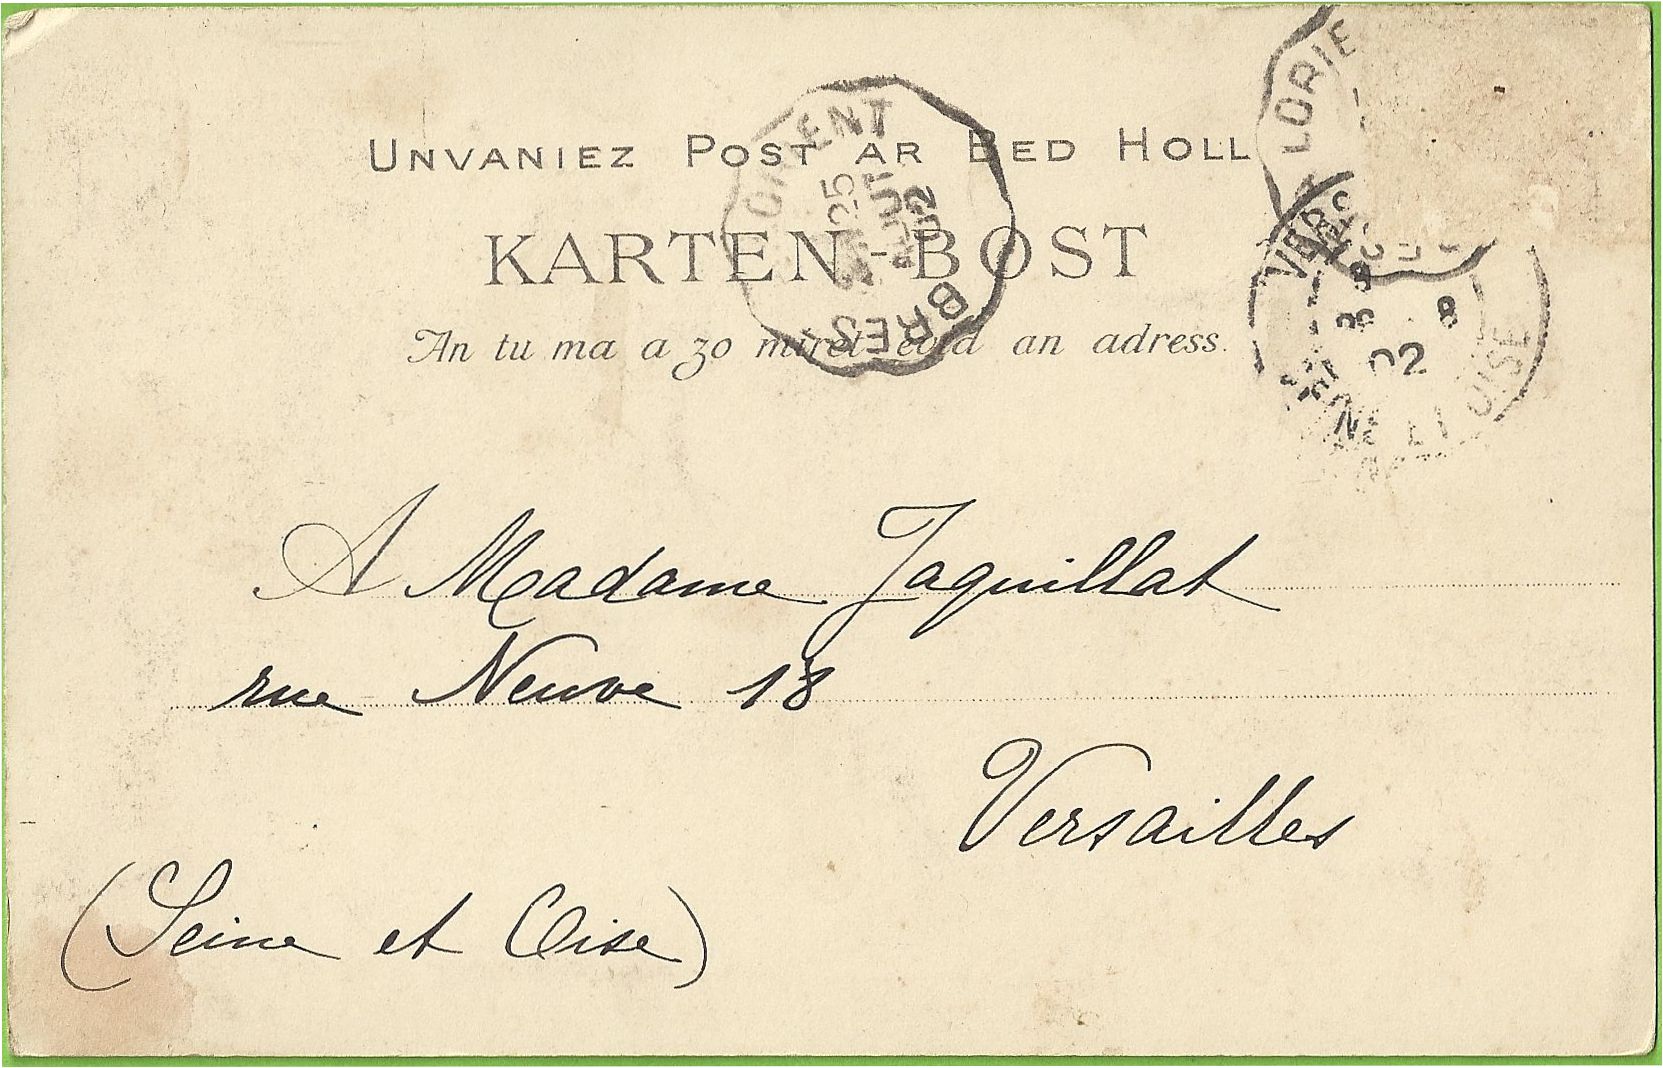 UNVANIEZ POST AR BED HOLL
KARTEN-BOST
An tu ma a zo miret evid an adress.
LORIENT
25
AOUT
02
BREST
LORIE
VERS
8
02
SEINE ET OISE
A Madame Jaquillat
rue Neuve 18
Versailles
(Seine et Oise)